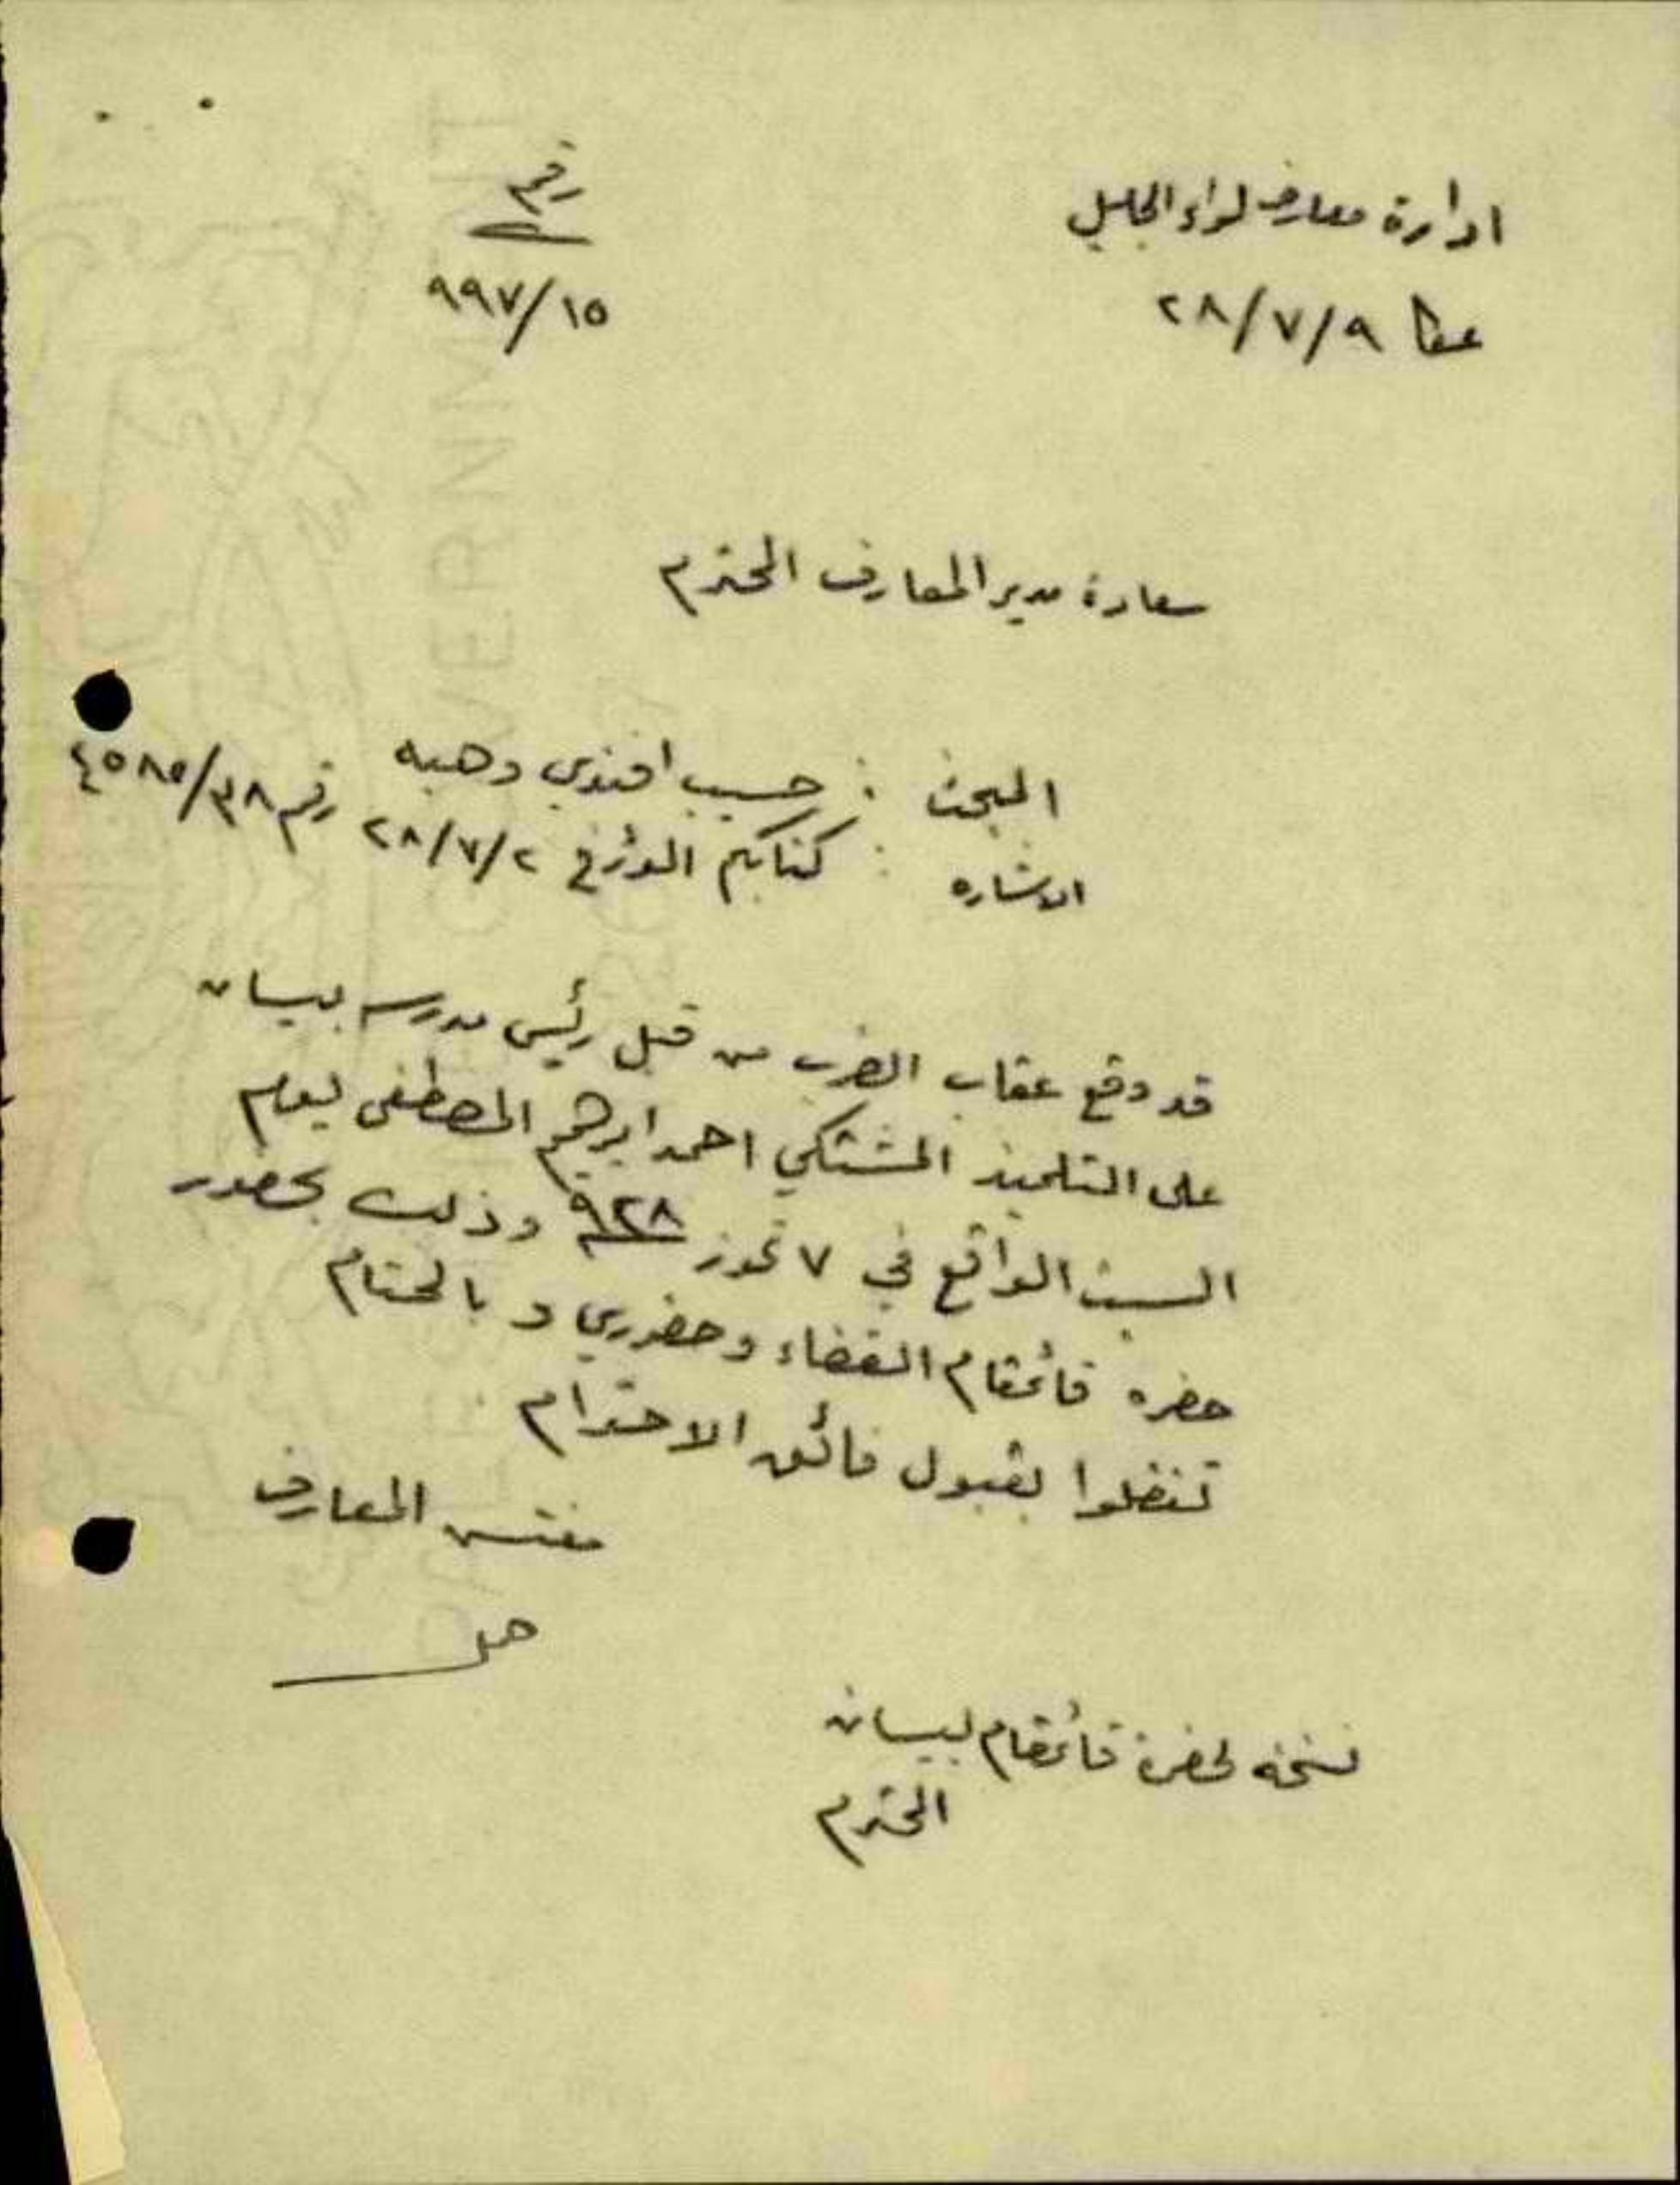 ادارة معارف لواء الجليل
رقم
عكا ٢٨/٧/٩
٩٩٧/١٥
سعادة مدير المعارف المحترم
البحث : حسيب افندي وهبه
الاشاره : كتابكم المؤرخ ٢٨/٧/٢ رقم ٤٥٨٥/٣٨
قد وقع عقاب الضرب من قبل رئيس مدرسه بيسان
على التلميذ المشتكي احمد ابرهيم المصطفى ليوم
السبت الواقع في ٧ تموز ٩٢٨ وذلك بحضور
حضره قائمقام القضاء وحضوري وبالختام
تفضلوا بقبول فائق الاحترام
مفتش المعارف
نسخه لحضرة قائمقام بيسان
المحترم
VERNMENT